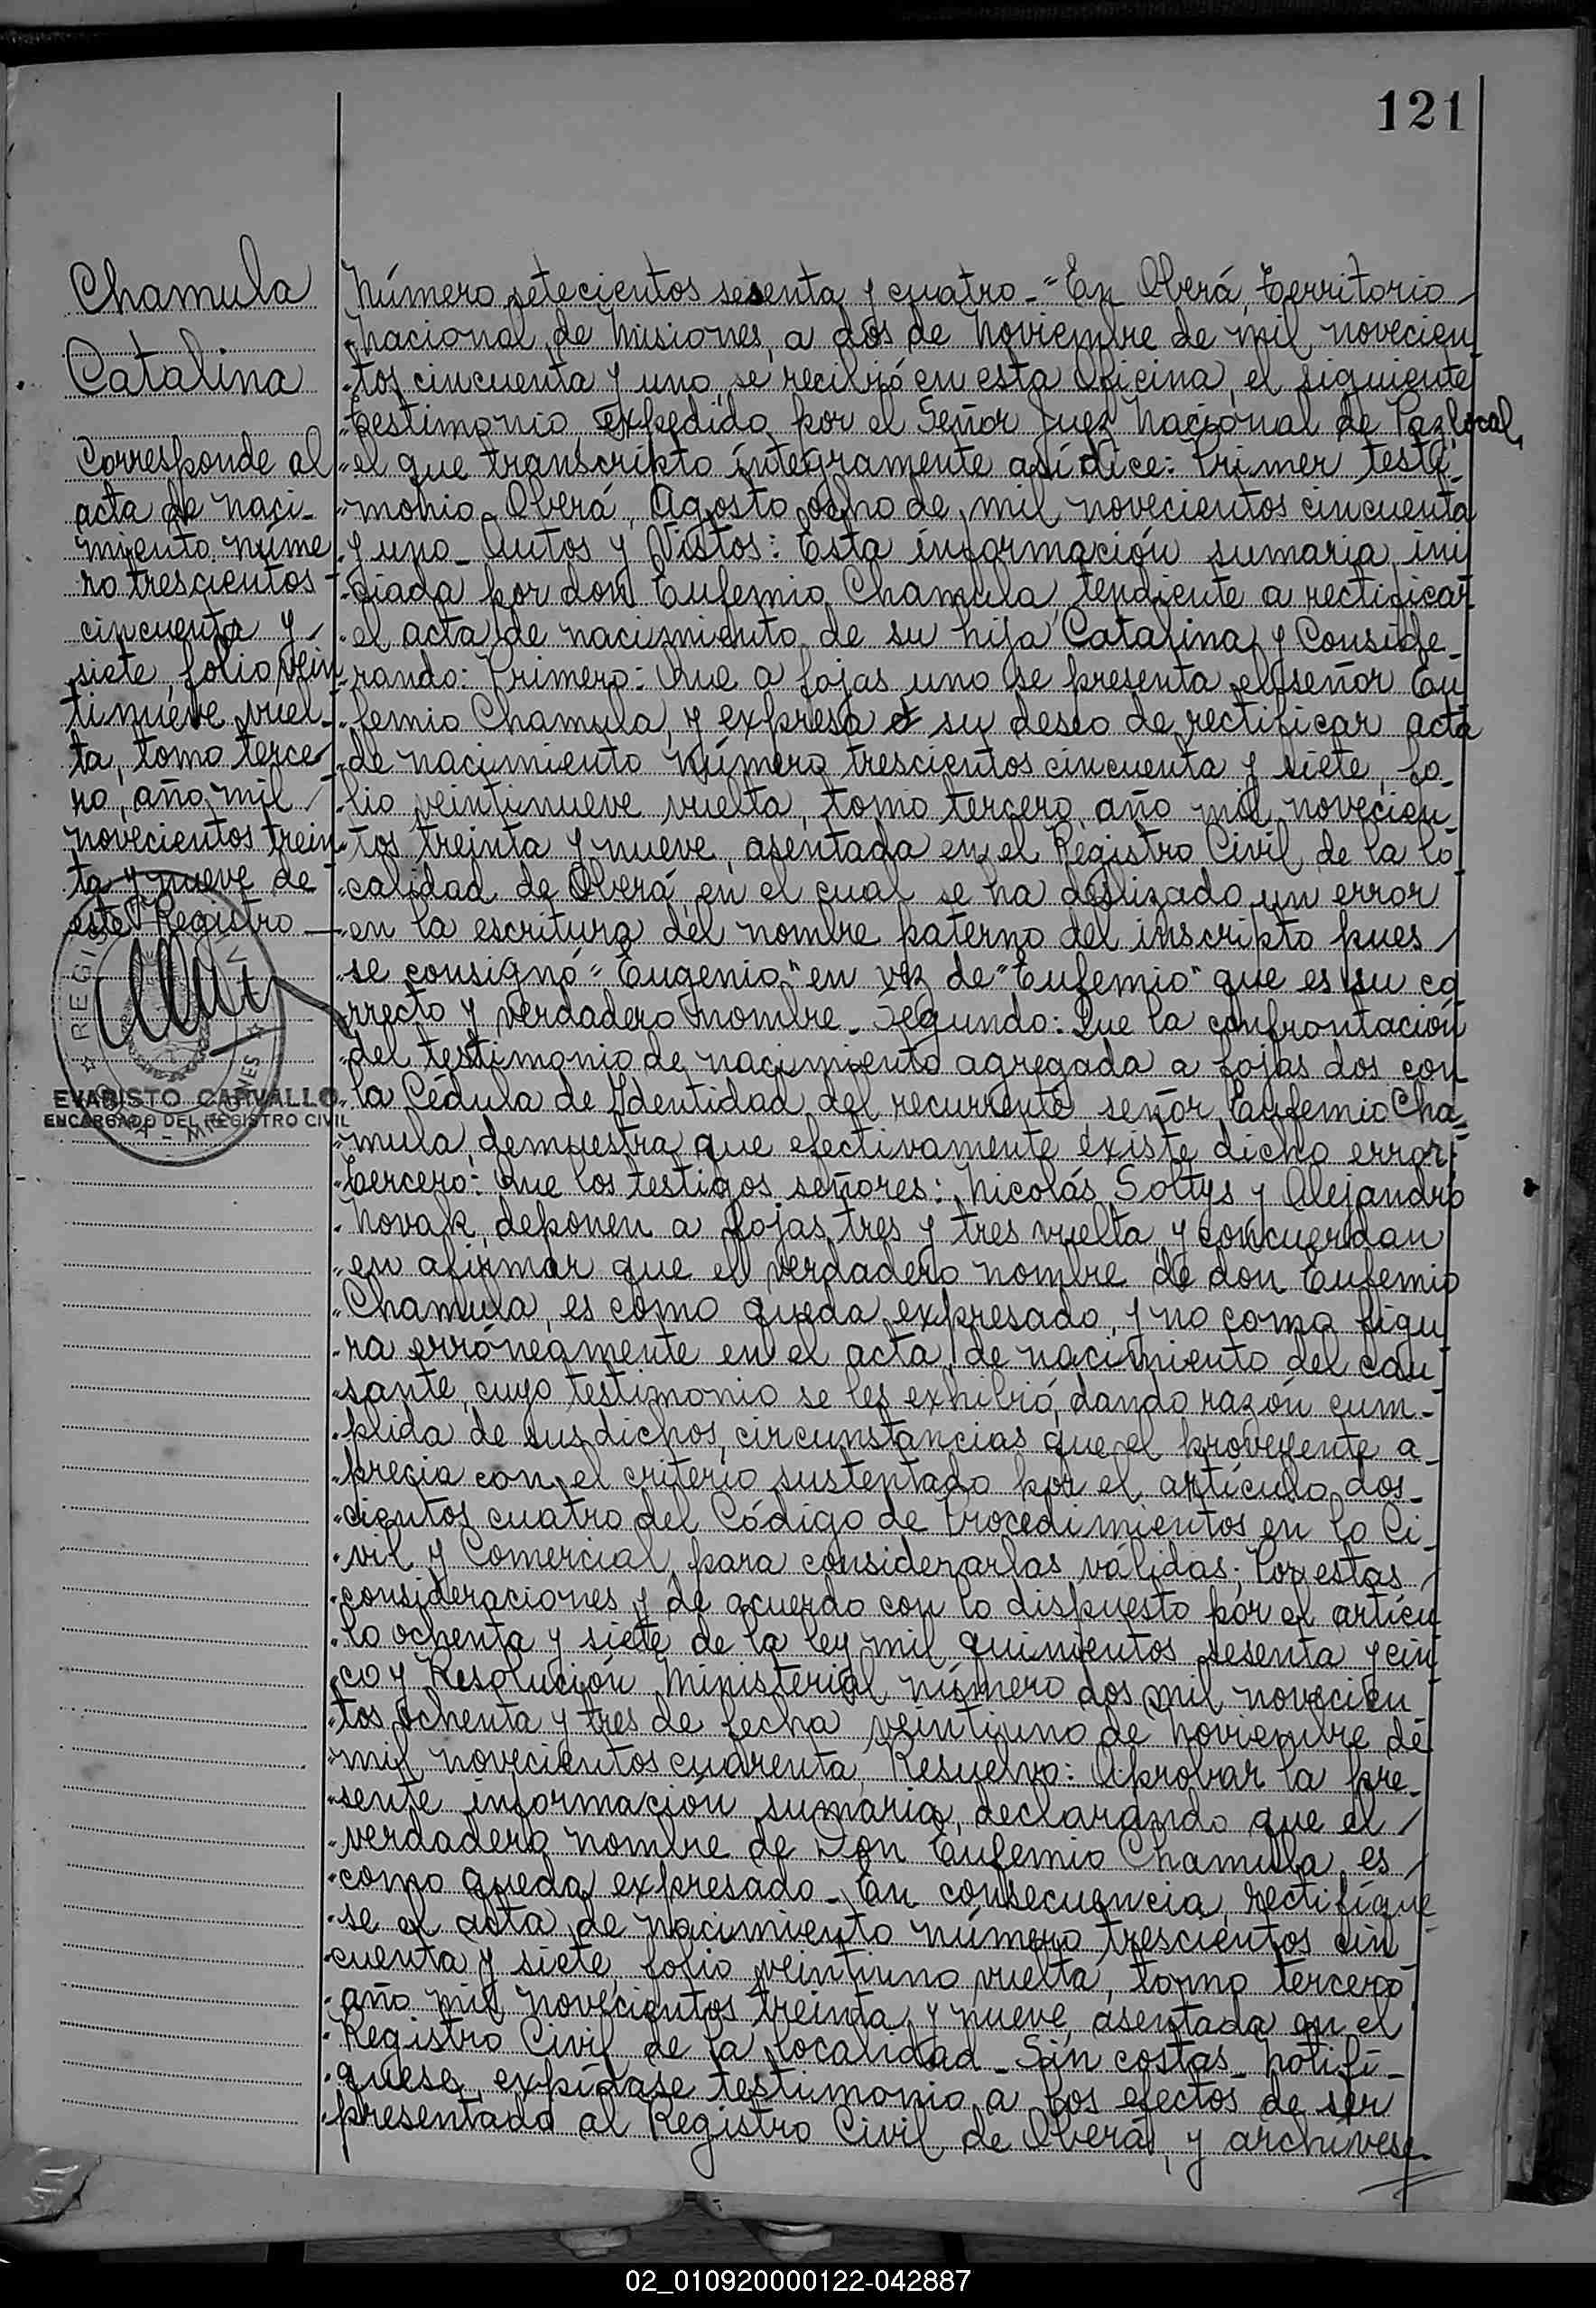 121
Chamula
Catalina
Corresponde al
acta de naci-
miento núme
ro trescientos
cincuenta y
siete, folio vein
tinueve vuel-
ta, tomo terce
ro, año mil
novecientos trein
ta y nueve de
este Registro
EVARISTO CARVALLO
ENCARGADO DEL REGISTRO CIVIL
Número setecientos sesenta y cuatro-"En Oberá, Territorio
"nacional de Misiones, a dos de Noviembre de mil novecien
"tos cincuenta y uno, se recibió en esta Oficina, el siguiente
"testimonio, expedido por el Señor Juez Nacional de Paz local,
"el que transcripto íntegramente así dice: Primer testi-
"monio. Oberá, Agosto ocho de mil novecientos cincuenta
"y uno- Autos y Vistos: Esta información sumaria ini
"ciada por don Eufemio Chamula, tendiente a rectificar
"el acta de nacimiento de su hija Catalina, y Conside-
"rando: Primero: Que a fojas uno se presenta el señor Eu
"femio Chamula, y expresa su deseo de rectificar acta
"de nacimiento número trescientos cincuenta y siete, fo-
"lio veintinueve vuelta, tomo tercero, año mil novecien
"tos treinta y nueve, asentada en el Registro Civil de la lo
"calidad de Oberá, en el cual se ha deslizado un error
"en la escritura del nombre paterno del inscripto pues
"se consignó "Eugenio" en vez de "Eufemio" que es su co
"rrecto y verdadero nombre- Segundo: Que la confrontación
"del testimonio de nacimiento agregada a fojas dos con
"la Cédula de Identidad del recurrente, señor Eufemio Cha-
"mula, demuestra que efectivamente existe dicho error;
"Tercero: Que los testigos señores: Nicolás Soltys y Alejandro
"Novak, deponen a fojas tres y tres vuelta, y concuerdan
"en afirmar que el verdadero nombre de don Eufemio
"Chamula, es como queda expresado, y no como figu
"ra erróneamente en el acta de nacimiento del cau
"sante, cuyo testimonio se les exhibió, dando razón cum-
"plida de sus dichos, circunstancias que el proveyente a-
"precia con el criterio sustentado por el artículo dos-
"cientos cuatro del Código de Procedimientos en lo Ci-
"vil y Comercial, para considerarlas válidas; Por estas
"consideraciones y de acuerdo con lo dispuesto por el artícu
"lo ochenta y siete de la ley mil quinientos sesenta y cin
"co y Resolución Ministerial número dos mil novecien
"tos ochenta y tres de fecha veintiuno de Noviembre de
"mil novecientos cuarenta, Resuelvo: Aprobar la pre-
"sente información sumaria, declarando que el
"verdadero nombre de Don Eufemio Chamula, es
"como queda expresado- En consecuencia, rectifíque
"se el acta de nacimiento número trescientos cin
"cuenta y siete, folio veintiuno vuelta, tomo tercero
"año mil novecientos treinta y nueve, asentada en el
"Registro Civil de la localidad- Sin costas- Notifí-
"quese, expídase testimonio a los efectos de ser
"presentado al Registro Civil de Oberá, y archívese-
02_010920000122-042887